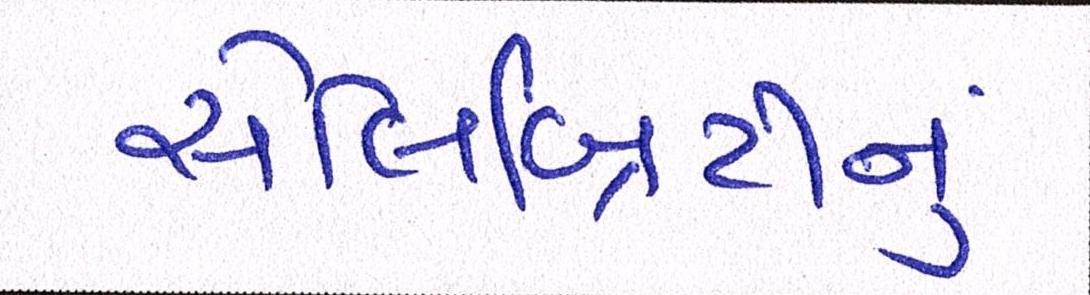 સેલિબ્રિટીનું